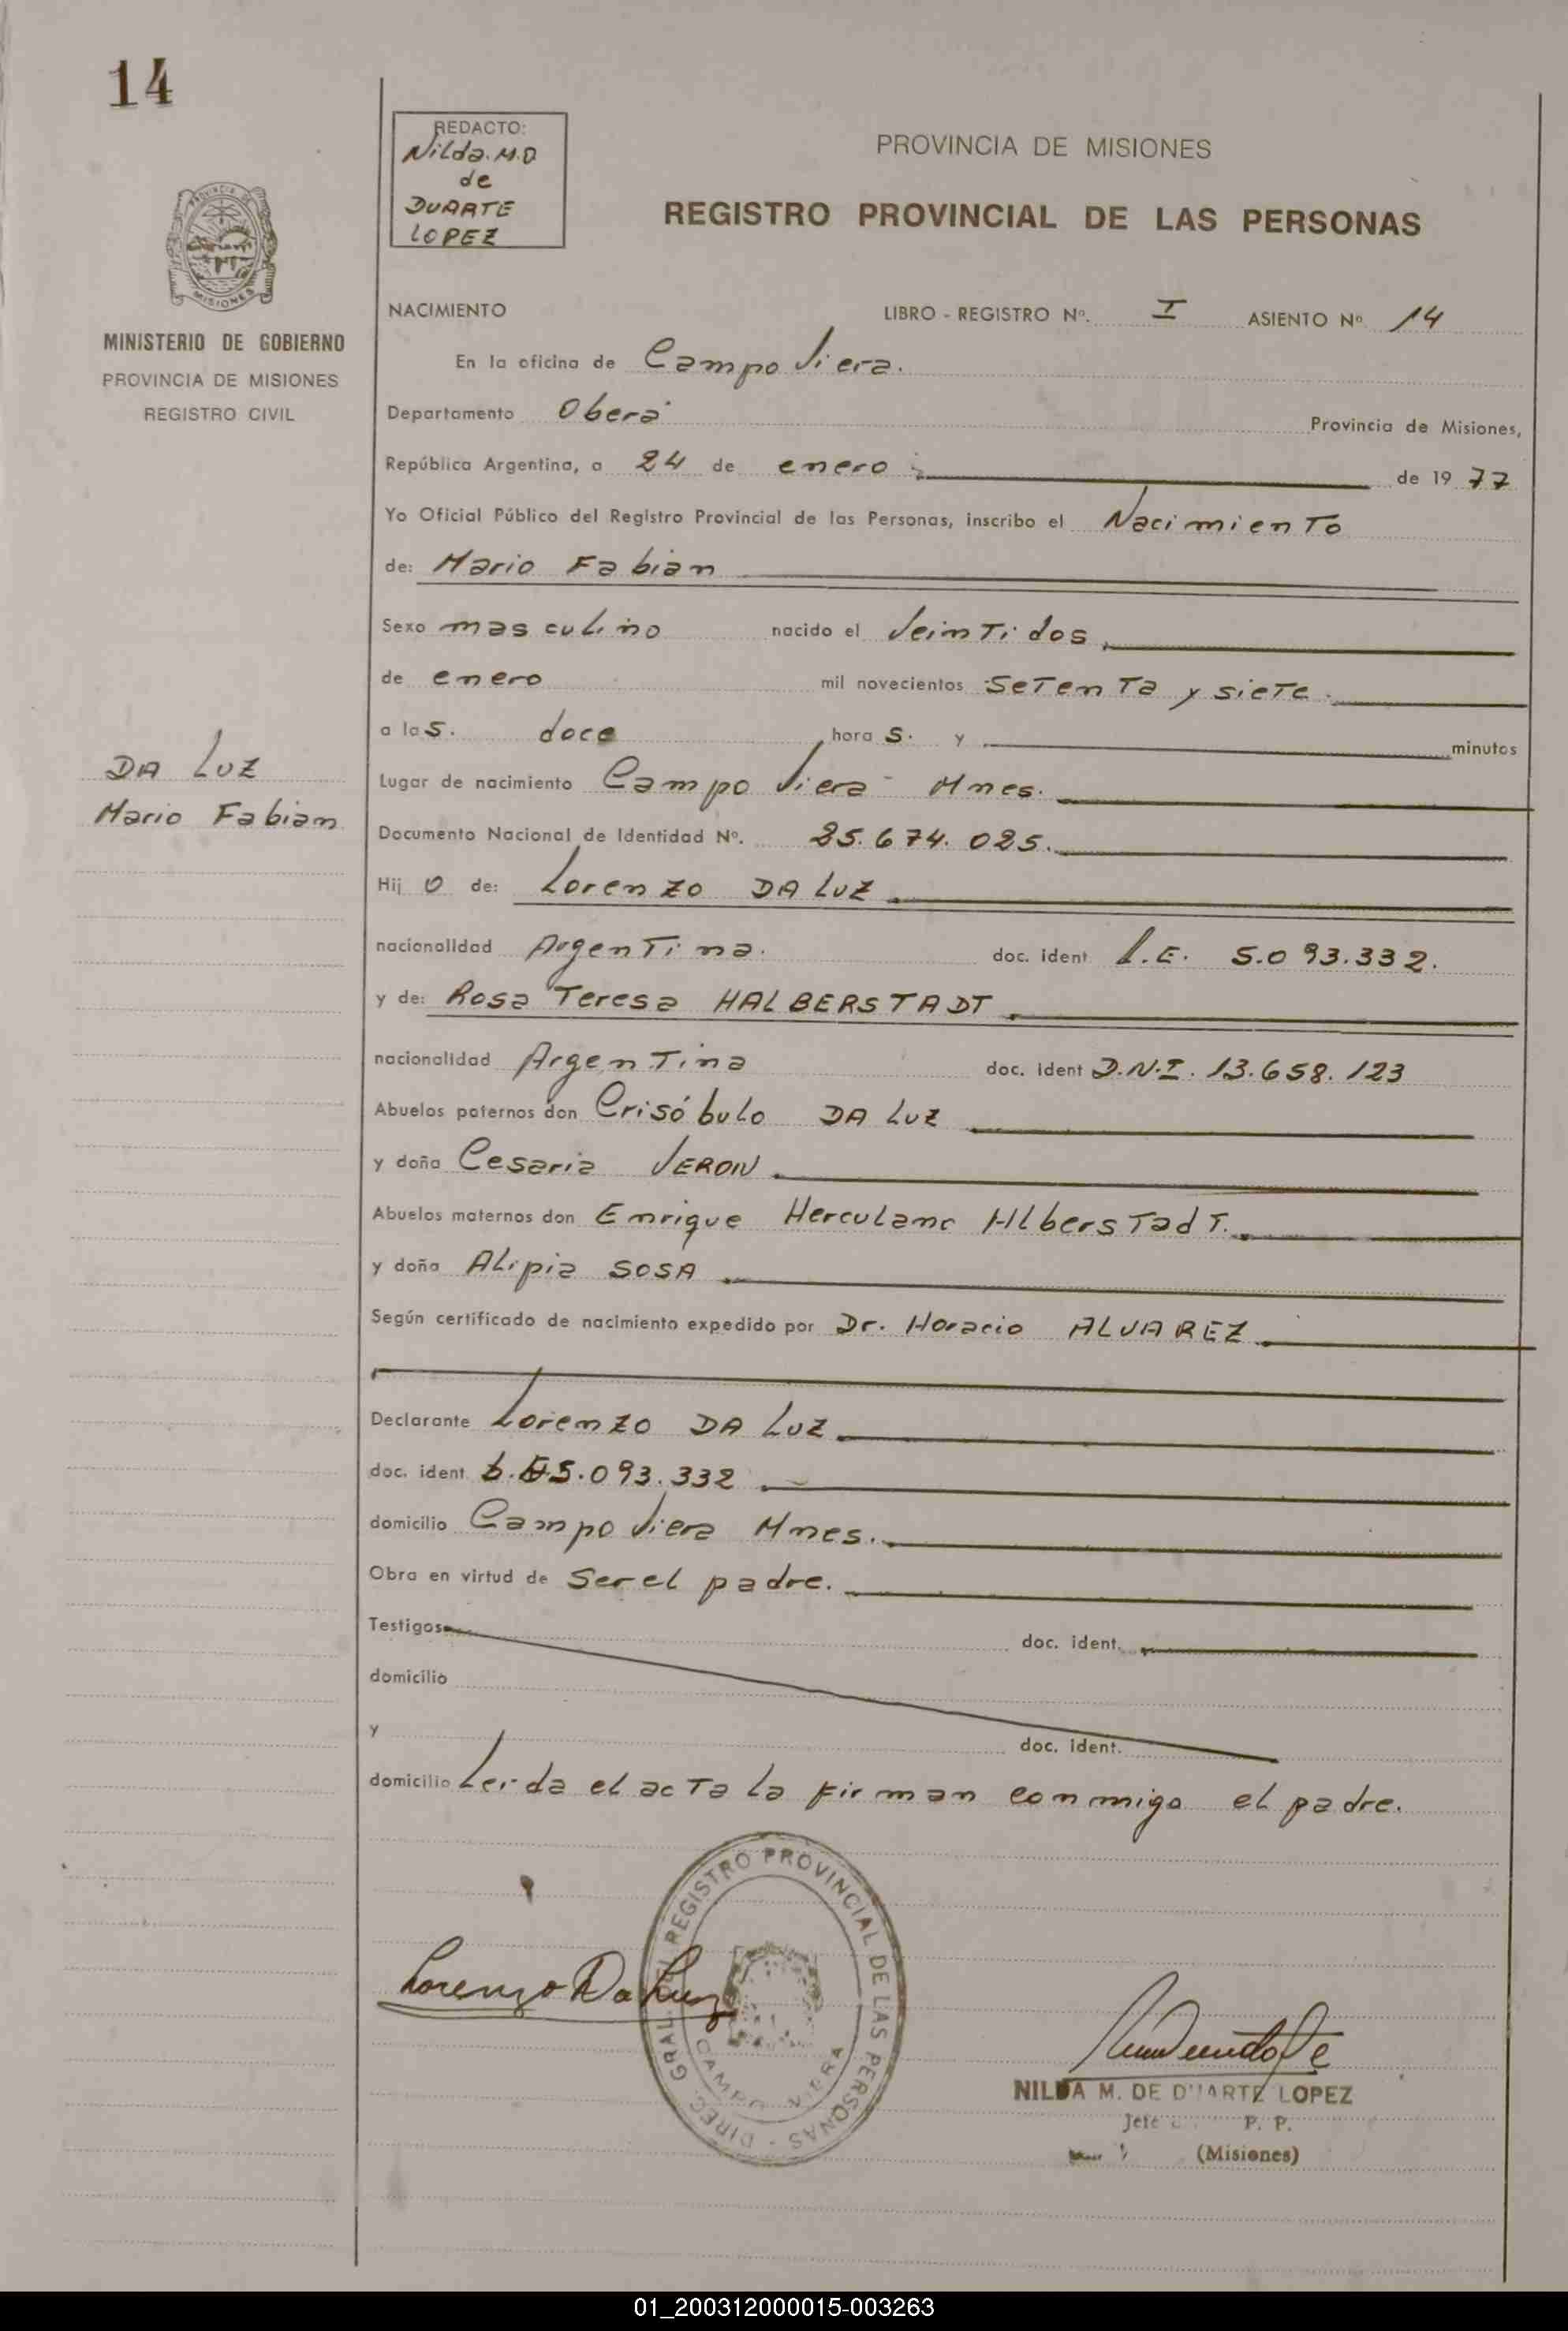 14
REDACTO:
Nilda. M. D
de
DUARTE
LOPEZ
PROVINCIA DE MISIONES
REGISTRO PROVINCIAL DE LAS PERSONAS
MISIONES
MINISTERIO DE GOBIERNO
PROVINCIA DE MISIONES
REGISTRO CIVIL
NACIMIENTO LIBRO - REGISTRO Nº. I ASIENTO Nº 14
En la oficina de Campo Viera.
Departamento Oberá Provincia de Misiones,
República Argentina, a 24 de enero de 1977
Yo Oficial Público del Registro Provincial de las Personas, inscribo el Nacimiento
de: Mario Fabian
Sexo masculino nacido el Veintidos
de enero mil novecientos Setenta y siete.
a las. doce horas. y minutos
DA LUZ
Mario Fabian
Lugar de nacimiento Campo Viera - Mnes.
Documento Nacional de Identidad Nº. 25.674.025.
Hijo de: Lorenzo DA LUZ
nacionalidad Argentina. doc. ident L.E. 5.093.332.
y de: Rosa Teresa HALBERSTADT
nacionalidad Argentina doc. ident D.N.I. 13.658.123
Abuelos paternos don Crisóbulo DA LUZ
y doña Cesaria VERON
Abuelos maternos don Enrique Herculano Hlberstadt.
y doña Alipia SOSA
Según certificado de nacimiento expedido por Dr. Horacio ALVAREZ
Declarante Lorenzo DA LUZ
doc. ident 5.093.332
domicilio Campo Viera Mnes.
Obra en virtud de Ser el padre.
Testigos doc. ident.
domicilio
y doc. ident.
domicilio Leida el acta la firman conmigo el padre.
DIREC. GRAL. DEL REGISTRO PROVINCIAL DE LAS PERSONAS -
CAMPO VIERA
Lorenzo Da Luz
NILDA M. DE DUARTE LOPEZ
Jefe P. P.
(Misiones)
01_200312000015-003263